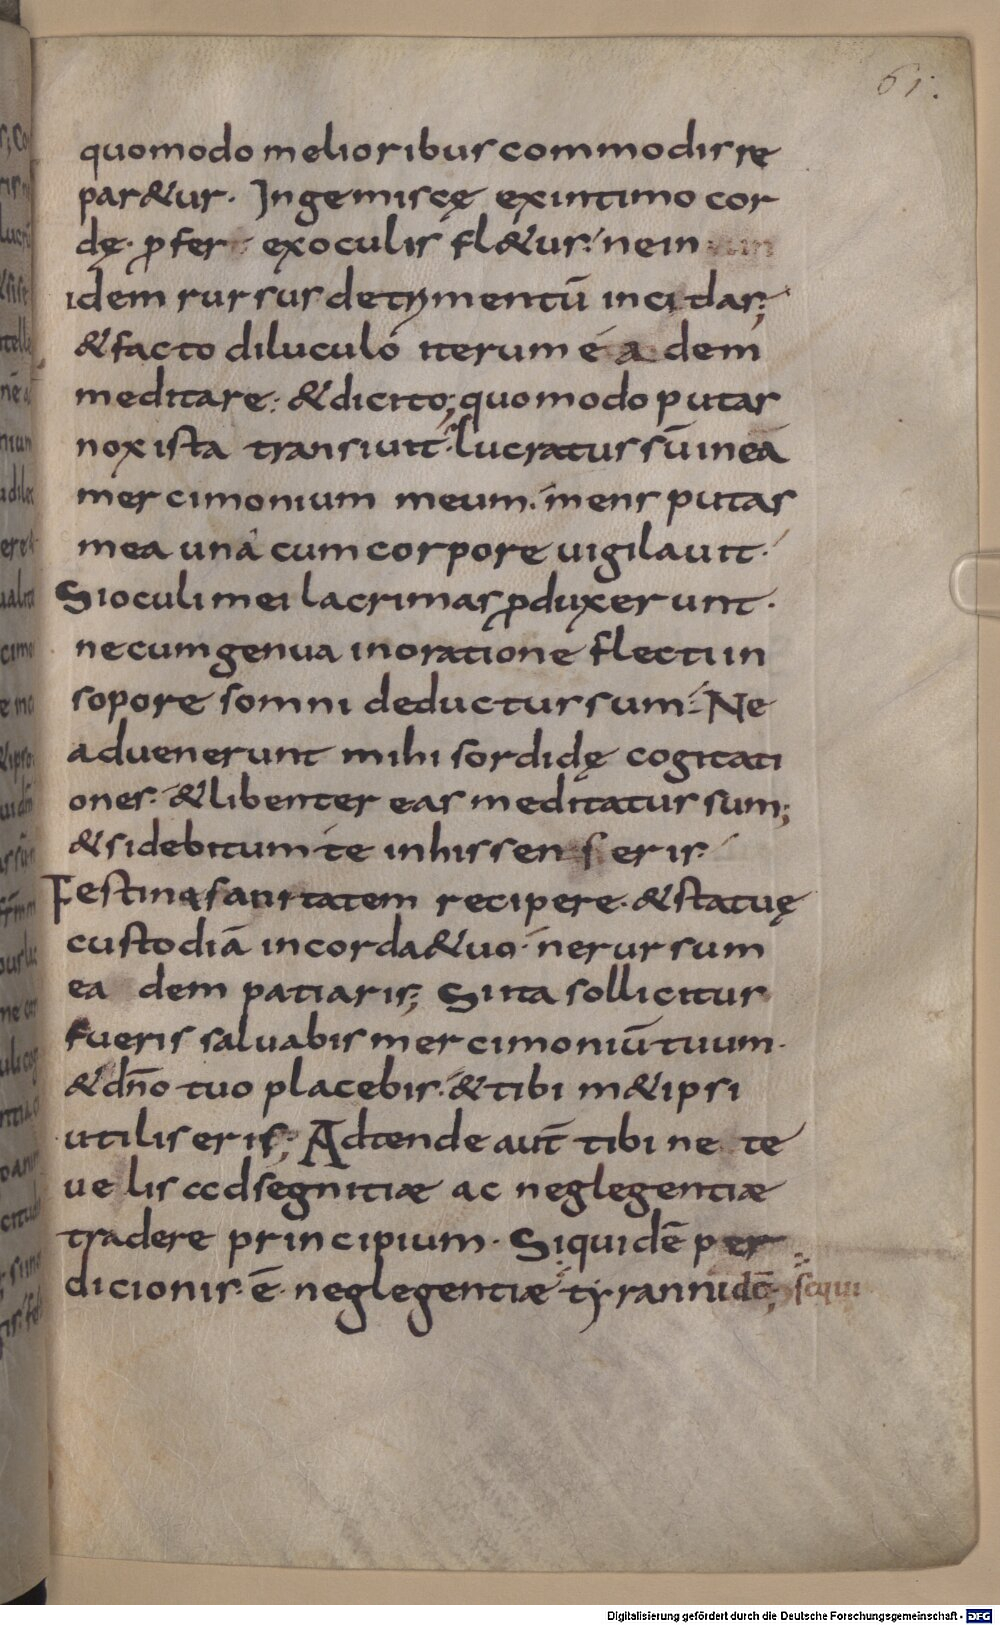 61.
quomodo melioribus commodis re
par&ur. Ingemiscę exintimo cor
dę. ꝓfer exoculis fl&us. ne in
idem rursus detrimentū incidas;
&facto diluculo iterum é a dem
meditare. &dicito; quomodo putas
nox ista transiuit. lucratus sū ineā
mercimonium meum. mens putas
mea una cum corpore uigilauit.
Si oculi mei lacrimas ꝓduxerunt.
necum genua inoratione flecti in
sopore somni deductus sum. Ne
aduenerunt mihi sordidę cogitati
ones. &libenter eas meditatus sum;
&sidebitum te inhis sen seris.
Festina sanitatem recipere. &statuę
custodiā incorda&uo. ne rursum
ea dem patiaris; Si ita sollicitus
fueris salvabis mercimoniū tuum.
&dn̄o tuo placebis. &tibi m&ipsi
utilis eris; Adtende aut̄ tibi ne te
uelis ad segnitiæ ac neglegentiæ
tradere principium. Siquidē per
dicionis ē neglegentiæ tyrannidē; sequi
Digitalisierung gefördert durch die Deutsche Forschungsgemeinschaft - DFG